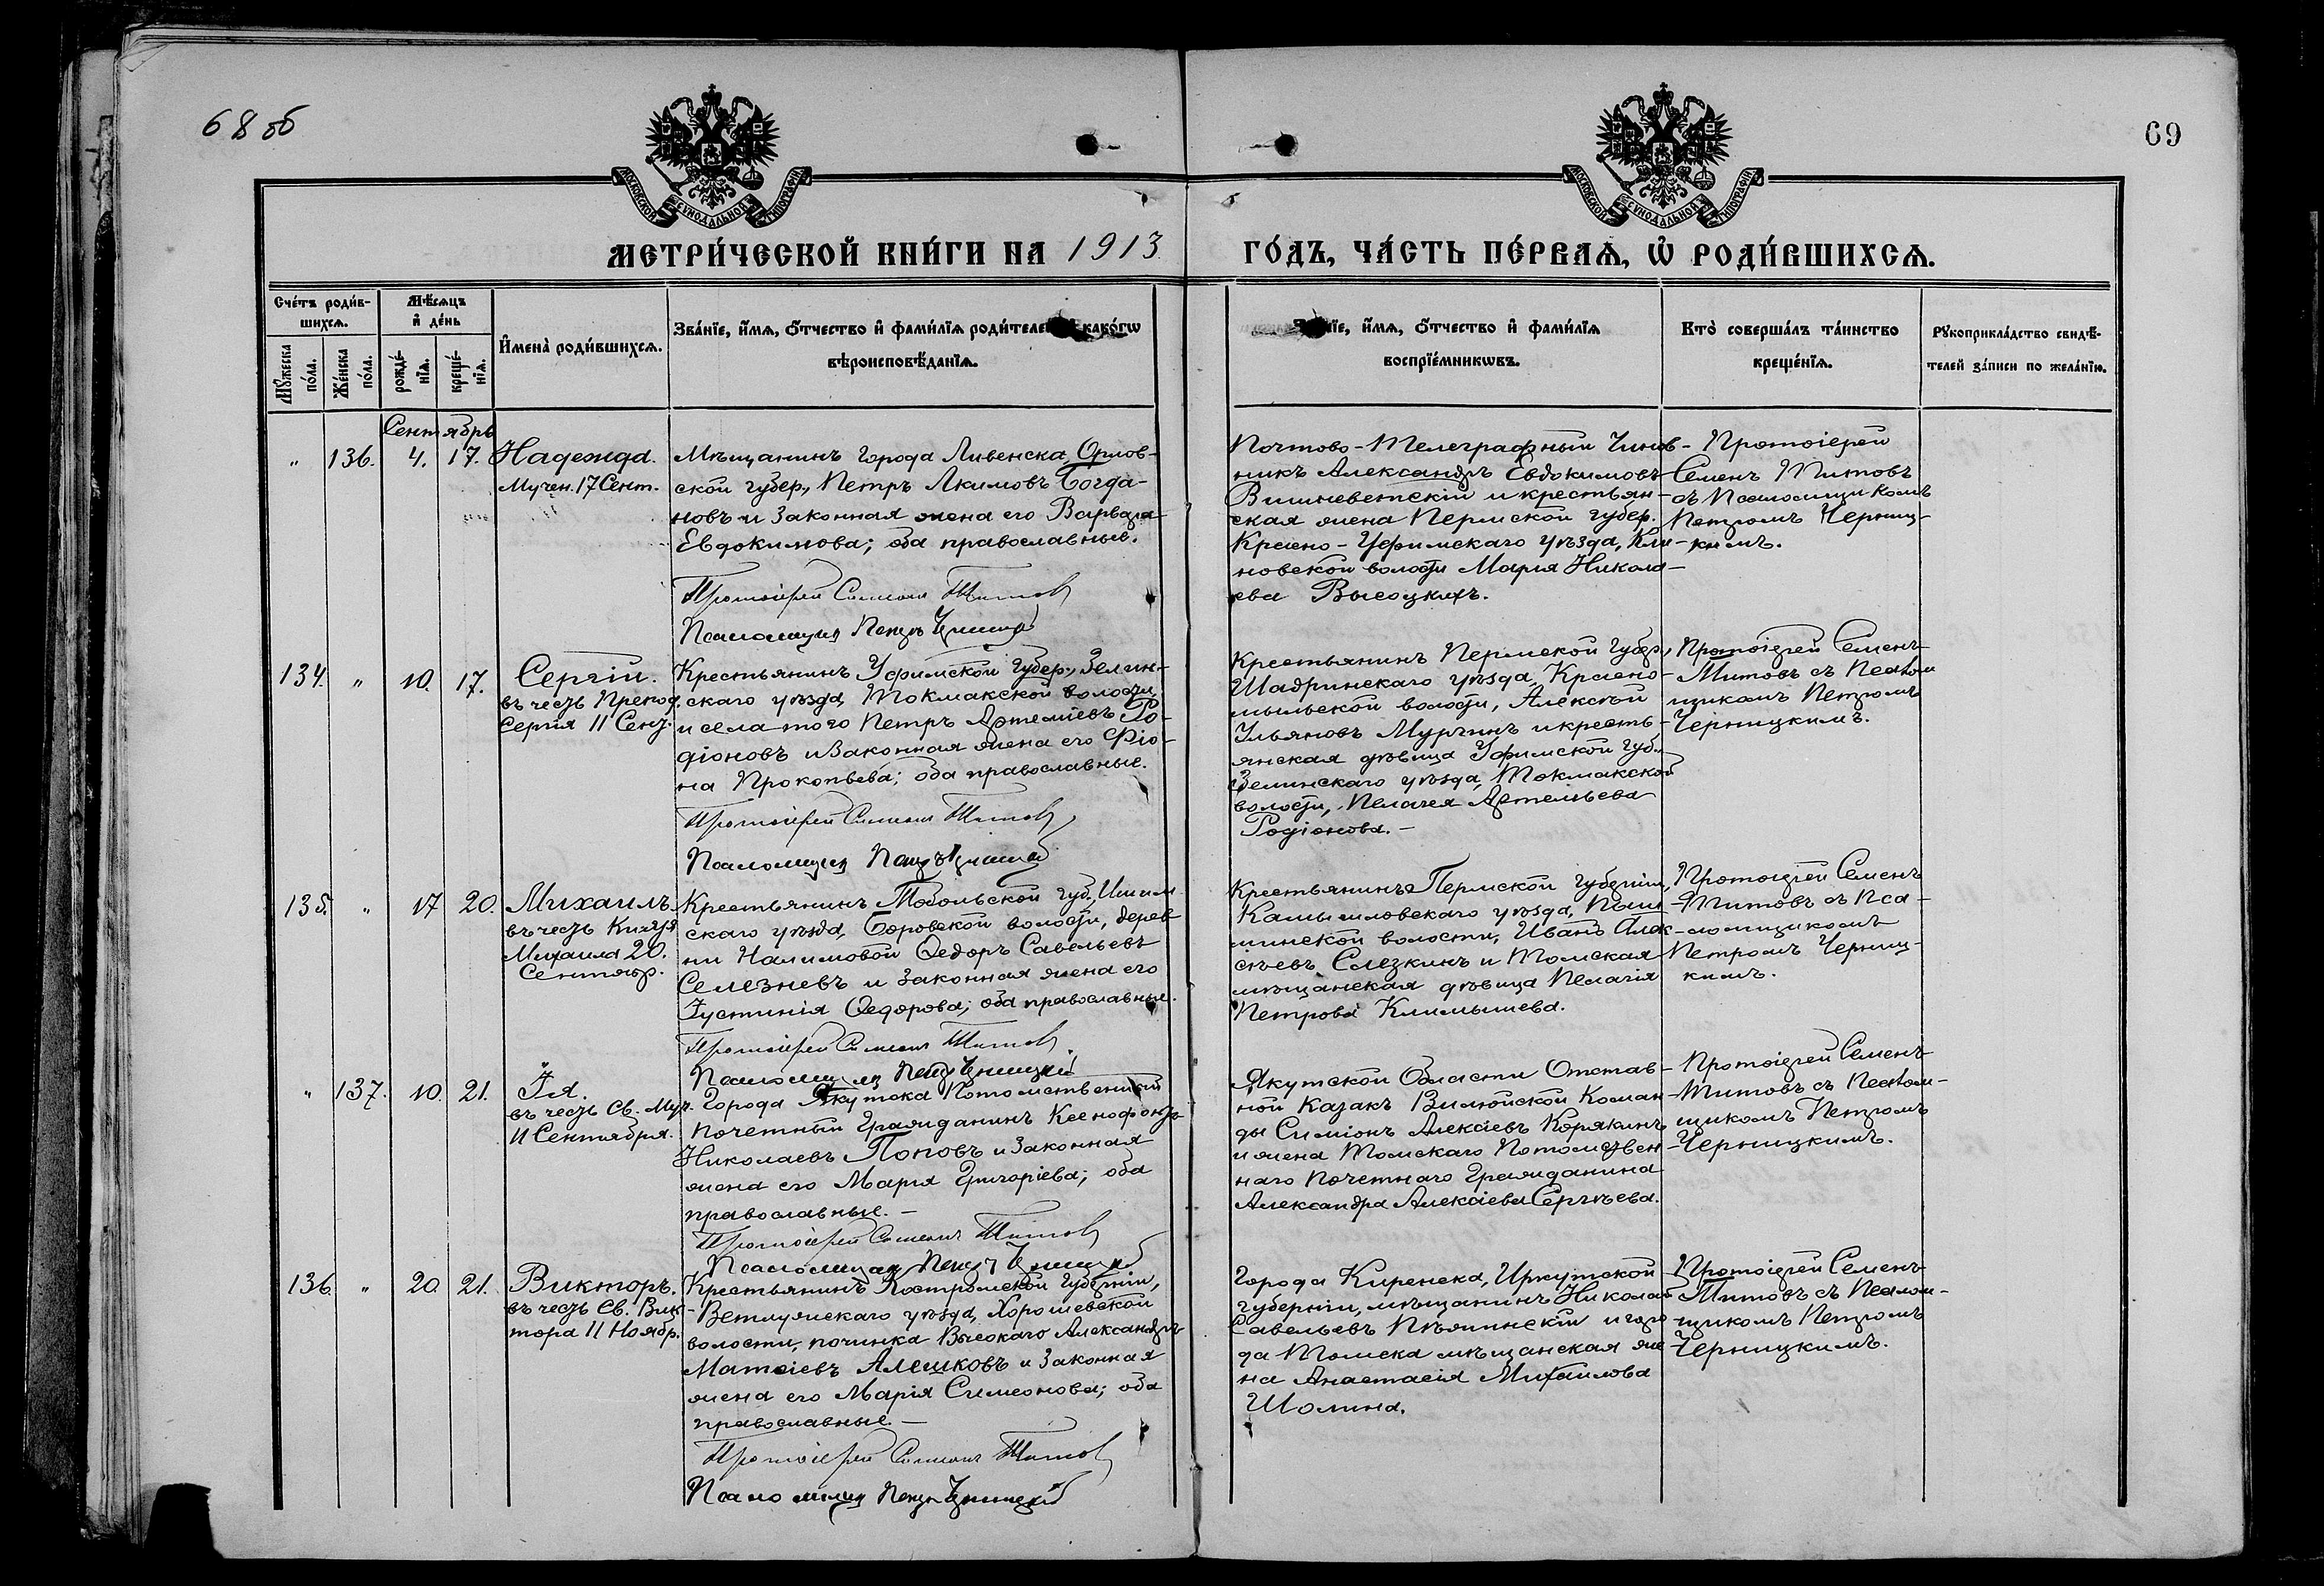 68 об
69
МОСКОВСКОЙ СѴНОДАЛЬНОЙ ТИПОГРАФІИ
МОСКОВСКОЙ СѴНОДАЛЬНОЙ ТИПОГРАФІИ
МЕТРИ́ЧЕСКОЙ КНИ́ГИ НА 1913
ГО́ДЪ, ЧА́СТЬ ПЕ́РВАѦ, Ѡ҆ РОДИ́ВШИХСѦ.
Сче́тъ роди́в-
шихсѧ.
Мꙋ́жеска по́ла.
Же́нска по́ла.
Мѣ́сѧцъ
и҆ де́нь
рожде́-
нїѧ.
креще́-
нїѧ.
И҆мена̀ роди́вшихсѧ.
Зва́нїе, и҆́мѧ, ѻ҆́тчество и҆ фами́лїѧ роди́телей како́гѡ
вѣроисповѣ́данїѧ.
Зва́нїе, и҆́мѧ, ѻ҆́тчество и҆ фами́лїѧ
воспрїе́мникѡвъ.
Кто̀ соверша́лъ та́инство
креще́нїѧ.
Рꙋкоприкла́дство свидѣ́-
телей за́писи по жела́нїю.
Сентябрь
„ 136. 4. 17. Надежда.
Мучен. 17 Сент.
Мѣщанинъ города Ливенска, Орлов-
ской губер., Петръ Акимовъ Богда-
новъ и законная жена его Варвара
Евдокимова; оба православные.
Протоіерей Симеонъ Титовъ
Псаломщик Петръ Черницкій
Почтово-Телеграфный Чинов-
никъ Александръ Евдокимовъ
Вишневетскій и крестьян-
ская жена Пермской губер.
Красно-Уфимскаго уѣзда, Кле-
новской волости Марія Никола-
ева Высоцкихъ.
Протоіерей
Семенъ Титовъ
съ Псаломщикомъ
Петромъ Черниц-
кимъ.
134. „ 10. 17. Сергій.
въ честь Препод.
Сергія 11 Сент.
Крестьянинъ Уфимской Губер., Зелин-
скаго уѣзда, Токмакской волости,
и села того Петръ Артеміевъ Ро-
діоновъ и Законная жена его Фіо-
на Прокопьева; оба православные.
Протоіерей Симеонъ Титовъ
Псаломщик Петръ Черницкій
Крестьянинъ Пермской Губер.,
Шадринскаго уѣзда, Красно-
мыльской волости, Алексѣй
Ульяновъ Мургинъ и кресть-
янская дѣвица Уфимской Губ.
Зелинскаго уѣзда, Токмакской
волости, Пелагея Артемьева
Родіонова.—
Протоіерей Семенъ
Титовъ съ Псалом
щикомъ Петромъ
Черницкимъ.
135. „ 17 20. Михаилъ.
въ честь Князя
Михаила 20.
Сентябр.
Крестьянинъ Тобольской губ., Ишим
скаго уѣзда, Боровской волости, дерев
ни Налимовой Ѳедоръ Савельевъ
Селезневъ и законная жена его
Іустинія Ѳедорова; оба православные.
Протоіерей Симеонъ Титовъ.
Псаломщик Петръ Черницкій
Крестьянинъ Пермской губерніи,
Камышловскаго уѣзда, Пыш-
минской волости, Иванъ Алек-
сѣевъ Слезкинъ и Томская
мѣщанская дѣвица Пелагія
Петрова Климышева.
Протоіерей Семенъ
Титовъ съ Пса-
ломщикомъ
Петромъ Черниц-
кимъ.
„ 137. 10. 21. Ія.
въ честь Св. Муч.
11 Сентября.
Города Якутска Потомственный
почетный Гражданинъ Ксенофонтъ
Николаевъ Поповъ и Законная
жена его Марія Григоріева; оба
православные.—
Протоіерей Симеонъ Титовъ
Псаломщик Петръ Черницкій
Якутской Области Отстав-
ной Казакъ Вилюйской Коман-
ды Симіонъ Алексіевъ Корякинъ
и жена Томскаго Потомствен-
наго Почетнаго Гражданина
Александра Алексіева Сергѣева.
Протоіерей Семенъ
Титовъ съ Псалом-
щикомъ Петромъ
Черницкимъ.
136. „ 20. 21. Викторъ.
въ честь Св. Вик-
тора 11 Ноябр.
Крестьянинъ Костромской Губерніи,
Ветлужскаго уѣзда, Хорошевской
волости, починка Высокаго Александръ
Матѳіевъ Алешковъ и Законная
жена его Марія Симеонова; оба
православные.—
Протоіерей Симеонъ Титовъ
Псаломщик Петръ Черницкій
Города Киренска, Иркутской
губерніи, мѣщанинъ Николай
Савельевъ Пѣжинскій и горо
да Томска мѣщанская же
на Анастасія Михаилова
Шолина.
Протоіерей Семенъ
Титовъ съ Псалом-
щикомъ Петромъ
Черницкимъ.